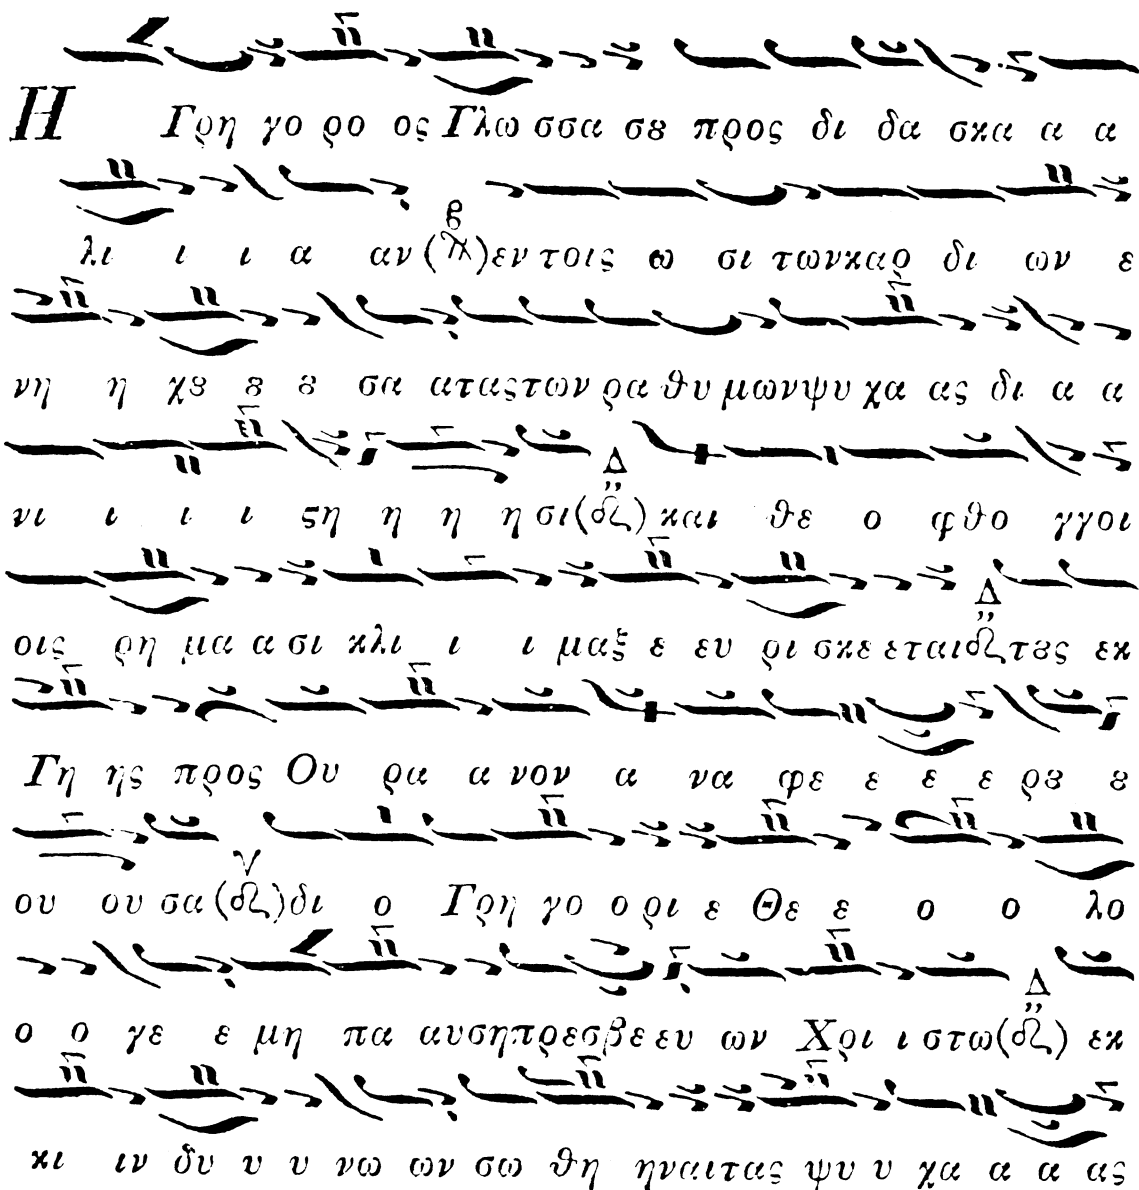 Η Γρη γο ρο ος Γλω σσα σȣ προς δι δα σκα α α
λι ι ι α αν (β) εν τοις ω σι των καρ δι ων ε
νη η χȣ ȣ ȣ σα α τας των ρα θυ μων ψυ χα ας δι α α
νι ι ι ι ϛη η η η σι (Δ) και θε ο φθο γγοι
οις ρη μα α σι κλι ι ι μαξ ε ευ ρι σκε εται Δ τȣς εκ
Γη ης προς Ου ρα α νον α να φε ε ε ε ρȣ ȣ
ου ου σα (ν) δι ο Γρη γο ο ρι ε Θε ε ο ο λο
ο ο γε ε μη πα αυση πρεσβε ευ ων Χρι ι στω (Δ) εκ
κι ιν δυ υ υ νω ων σω θη ηναι τας ψυ υ χα α α ας